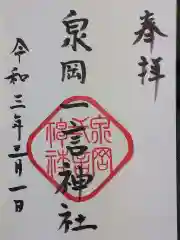 奉拝
泉岡一言神社
令和三年三月一日